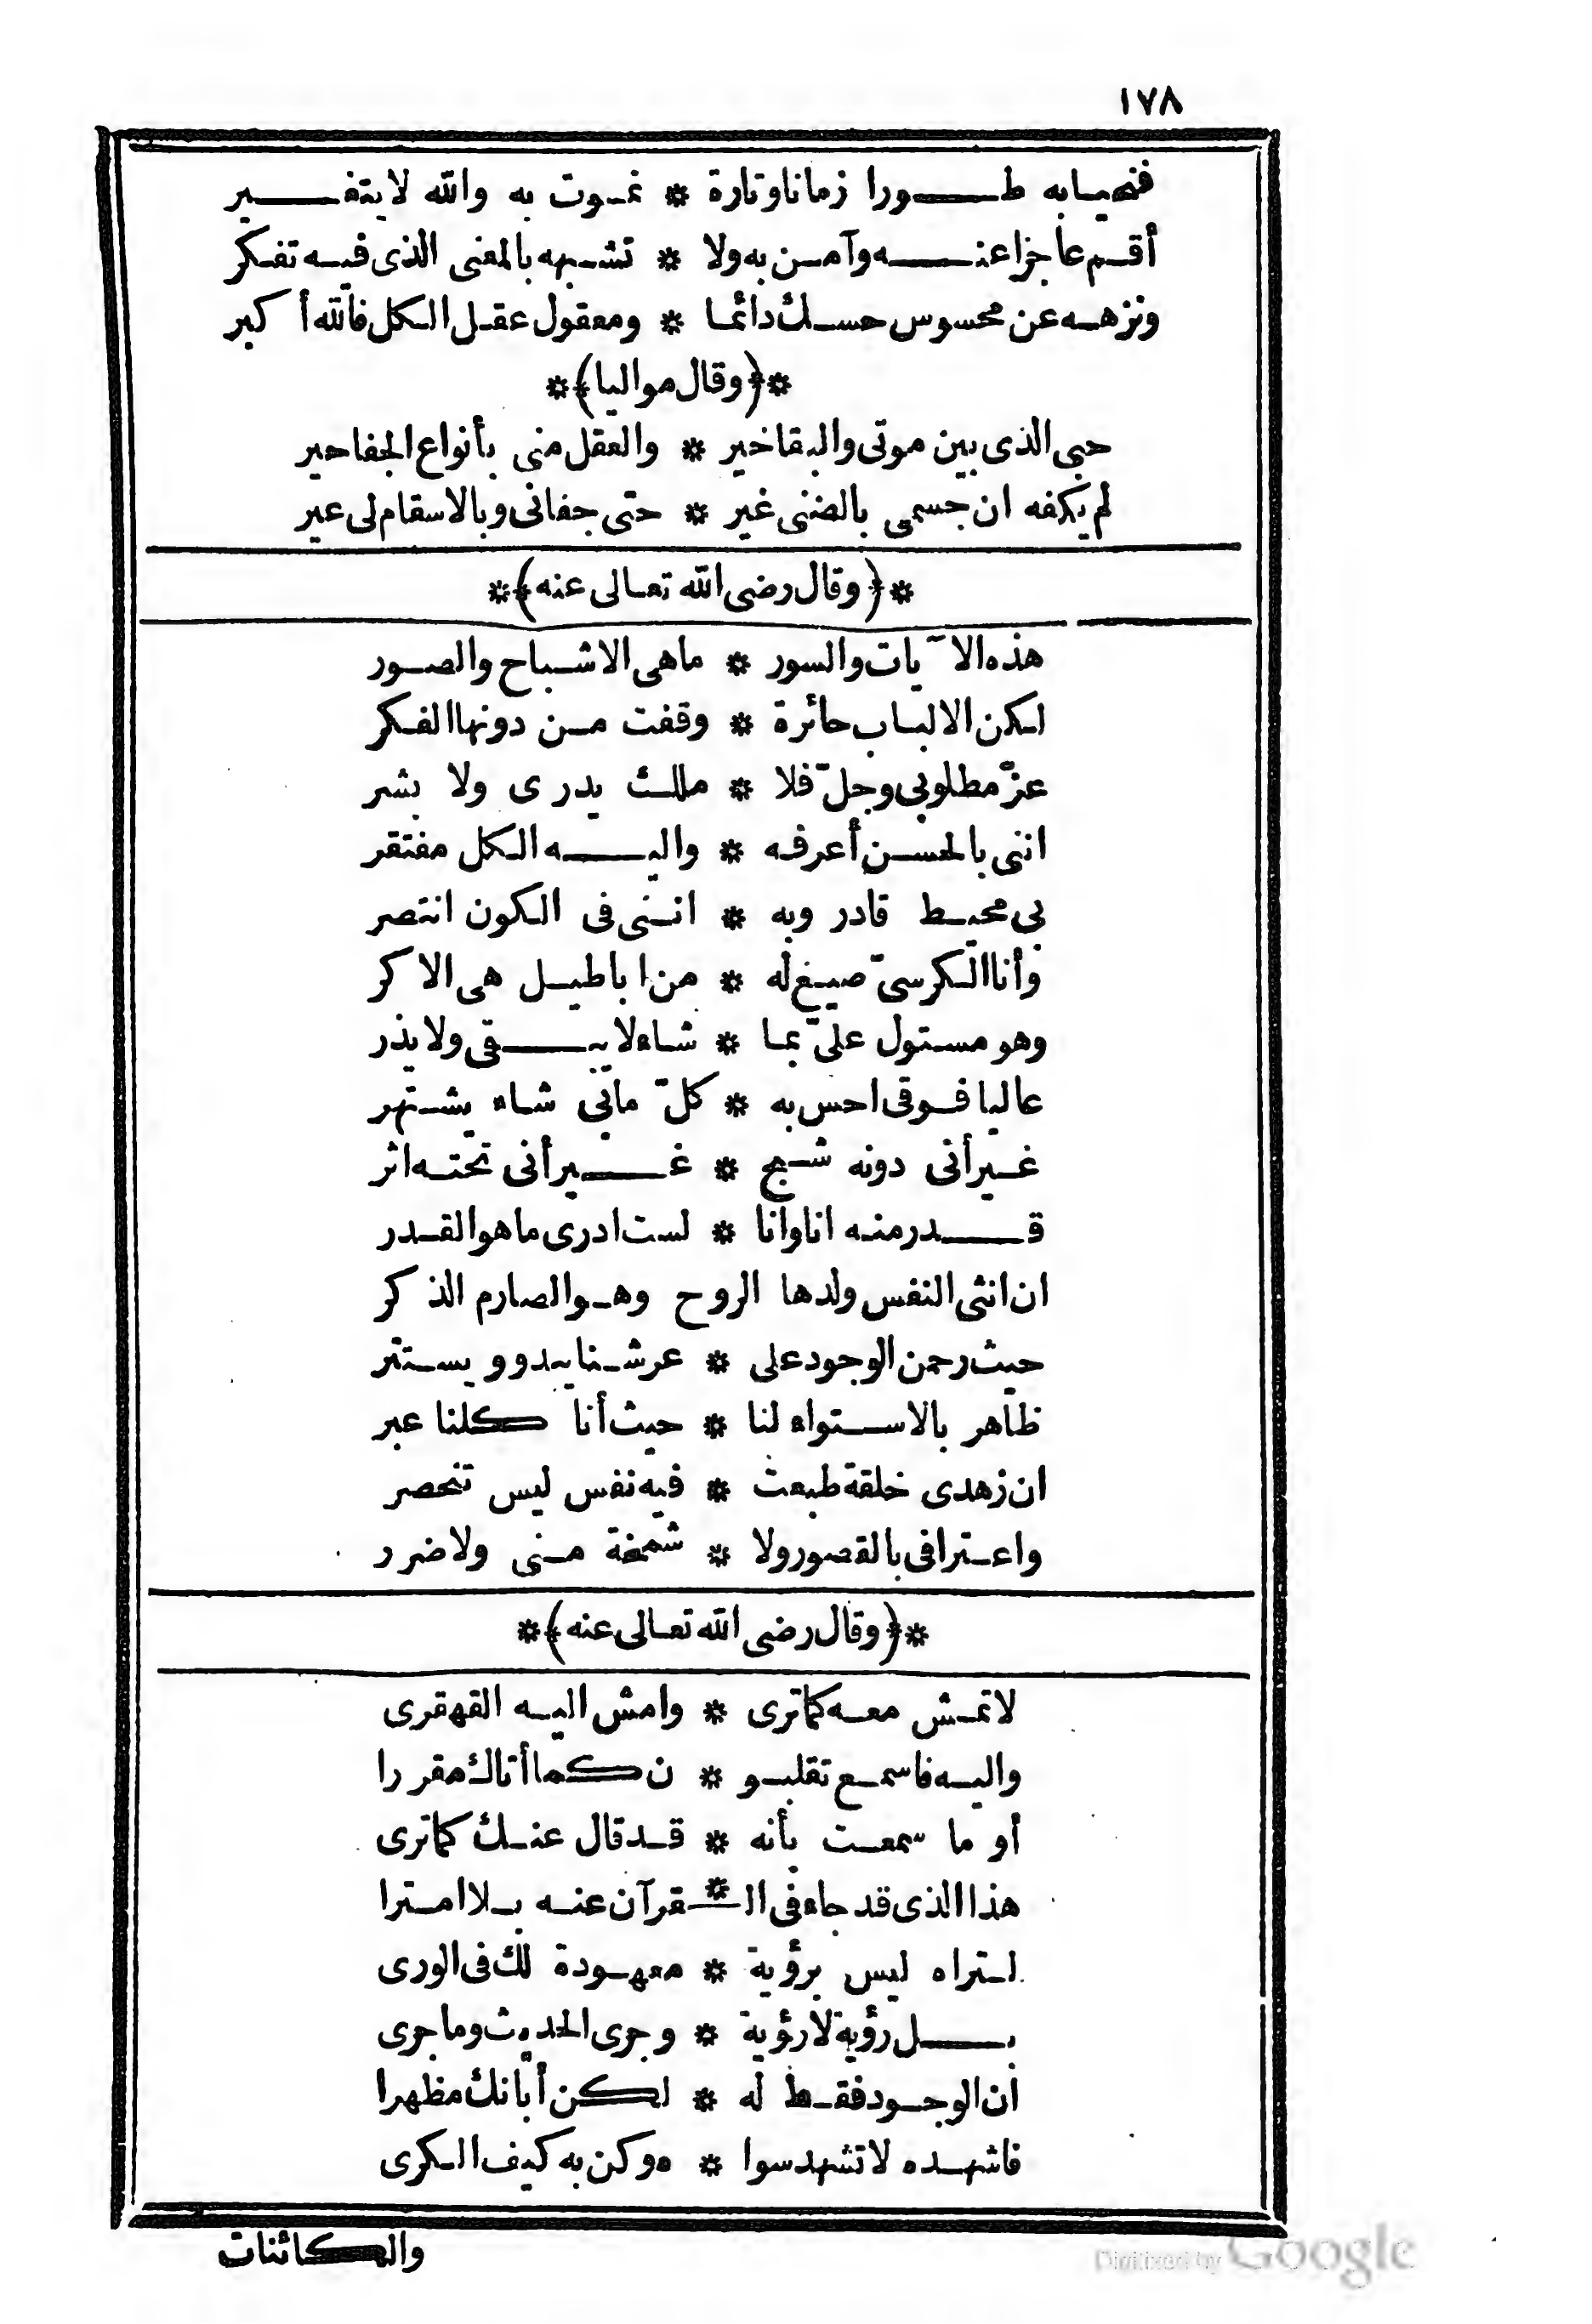 ١٧٨
فنحيا به طورا زمانا وتارة * نموت به والله لا يتغير
أقم عاجزا عنه وآمن به ولا * تشبهه بالمعنى الذى فيه تفكر
ونزهه عن محسوس حسك دائما * ومعقول عقل الكل فالله أكبر
*(وقال مواليا)*
حبى الذى بين موتى والبقا خير * والعقل منى بأنواع الجفا حير
لم يكفه ان جسمى بالضنى غير * حتى جفانى وبالاسقام لى عير
*(وقال رضى الله تعالى عنه)*
هذه الآيات والسور * ماهى الاشباح والصور
لكن الالباب حائرة * وقفت من دونها الفكر
عزّ مطلوبى وجلّ فلا * ملك يدرى ولا بشر
اننى بالحسن أعرفه * واليه الكل مفتقر
بى محيط قادر وبه * اننى فى الكون انتصر
وأنا الكرسىّ صيغ له * من اباطيل هى الاكر
وهو مستول علىّ بما * شاء لا يبقى ولا يذر
عاليا فوقى احس به * كلّ مابى شاء يشتهر
غير أنى دونه شبح * غير أنى تحته اثر
قدر منه انا وانا * لست ادرى ما هو القدر
ان انثى النفس ولدها الروح وهو الصارم الذكر
حيث رحمن الوجود على * عرشنا يبدو ويستتر
ظاهر بالاستواء لنا * حيث أنا كلنا عبر
ان زهدى خلقة طبعت * فيه نفس ليس تنحصر
واعترافى بالقصور ولا * شمخة منى ولا ضرر
*(وقال رضى الله تعالى عنه)*
لا تمش معه كما ترى * وامش اليه القهقرى
واليه فاسمع تقلبو * ن كما أتاك مقررا
أو ما سمعت بأنه * قد قال عنك كما ترى
هذا الذى قد جاء فى الـ * ـقرآن عنه بلا امترا
لتراه ليس برؤية * معهودة لك فى الورى
بل رؤية لا رؤية * وجرى الحديث وما جرى
ان الوجود فقط له * لكن أبانك مظهرا
فاشهده لا تشهد سوا * ه وكن به كيف الكرى
والكائنات
Digitized by Google